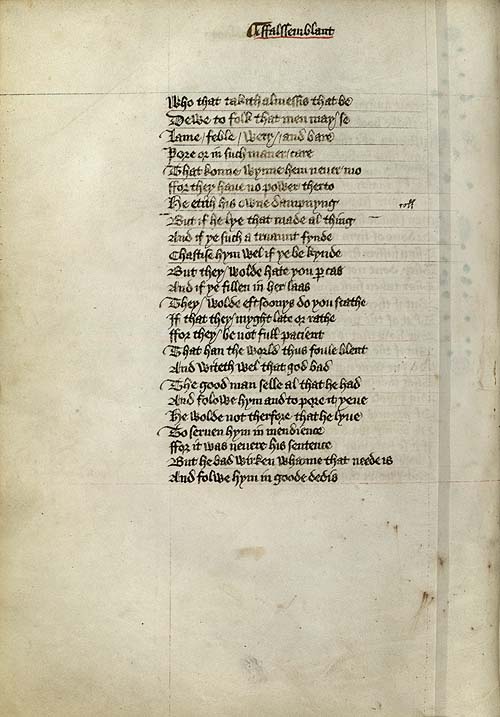 ffalssemblant
Who that takith almessis that be
Dewe to folk that men may se
Lame / feble / wery / and bare
Pore or in such maner care
That konne wynne hem neuer mo
ffor they haue no power therto
He etith his owne dampnyng
But if he lye that made al thing
And if ye such a truaunt fynde
Chastise hym wel if ye be kynde
But they / wolde hate you p cas
And if ye fillen in her laas
They / wolde eftsoonys do you scathe
If that they / myght late or rathe
ffor they / be not full pacient
That han the world thus foule blent
And witeth wel that god bad
The good man selle al that he had
And folowe hym and to pore it yeue
He wolde not therfore that he lyue
To seruen hym in mendience
ffor it was neuere his sentence
But he bad wirken whanne that neede is
And folwe hym in goode dedis